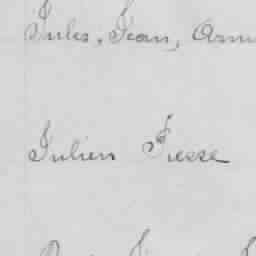 Jules, Jean, Arm
Julien Fresse